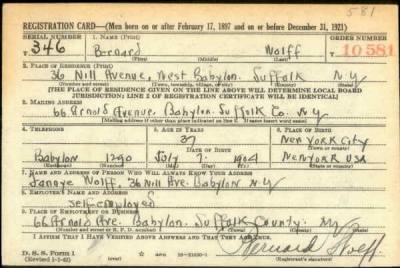 581
REGISTRATION CARD—(Men born on or after February 17, 1897 and on or before December 31, 1921)
SERIAL NUMBER 1. NAME (Print) ORDER NUMBER
T 346 Bernard Wolff T 10581
(First) (Middle) (Last)
2. PLACE OF RESIDENCE (Print)
36 Nill Avenue, West Babylon. Suffolk N.Y
(Number and street) (Town, township, village, or city) (County) (State)
[THE PLACE OF RESIDENCE GIVEN ON THE LINE ABOVE WILL DETERMINE LOCAL BOARD
JURISDICTION; LINE 2 OF REGISTRATION CERTIFICATE WILL BE IDENTICAL]
3. MAILING ADDRESS
66 Arnold Avenue. Babylon. Suffolk Co. N.Y
[Mailing address if other than place indicated on line 2. If same insert word same]
4. TELEPHONE 5. AGE IN YEARS 6. PLACE OF BIRTH
37 New York City
DATE OF BIRTH (Town or county)
Babylon 1290 July 7 1904 New York USA
(Exchange) (Number) (Mo.) (Day) (Yr.) (State or country)
7. NAME AND ADDRESS OF PERSON WHO WILL ALWAYS KNOW YOUR ADDRESS
Wolff, 36 Nill Ave. Babylon N.Y
8. EMPLOYER'S NAME AND ADDRESS
Self-employed
9. PLACE OF EMPLOYMENT OR BUSINESS
66 Arnold Ave Babylon. Suffolk County. NY
(Number and street or R. F. D. number) (Town) (County) (State)
I AFFIRM THAT I HAVE VERIFIED ABOVE ANSWERS AND THAT THEY ARE TRUE.
D. S. S. Form 1
(Revised 1-2-42) (over) 16—21630-1 Bernard Wolff.
(Registrant's signature)